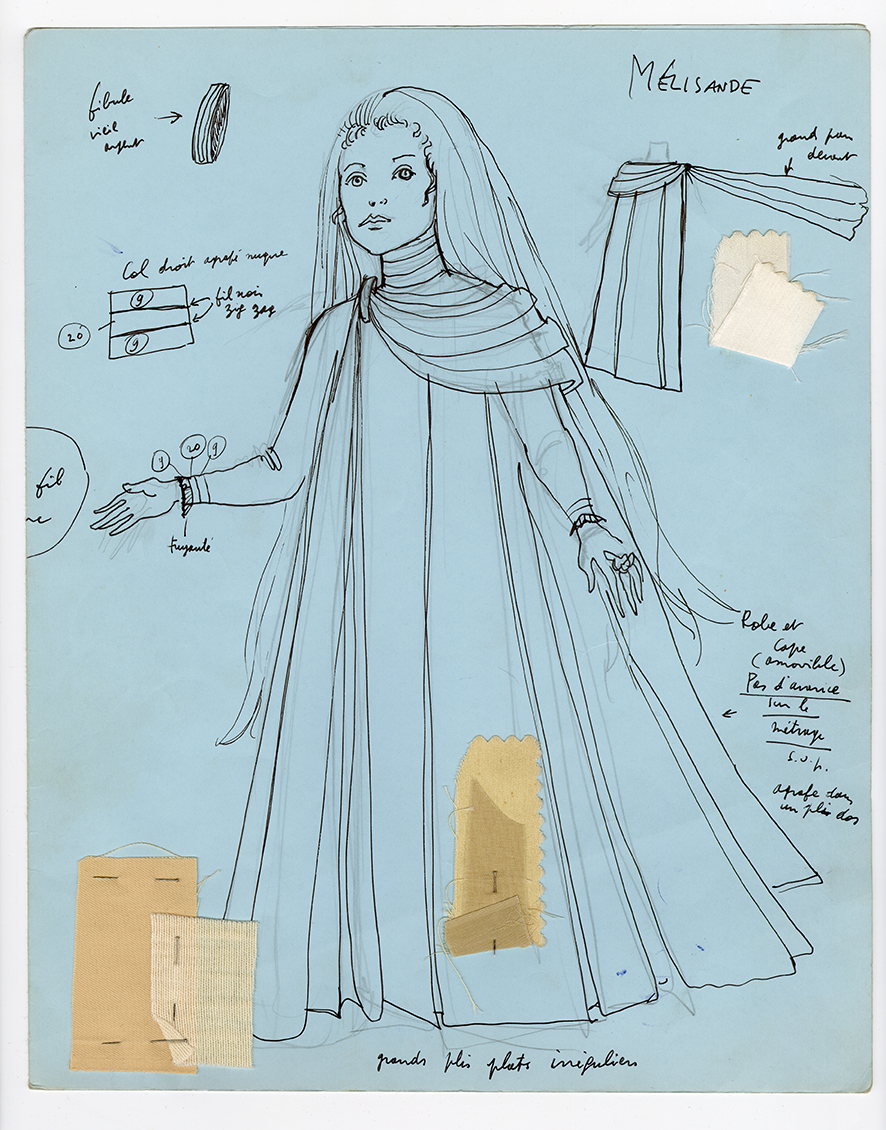 MÉLISANDE
fibule
vieil
argent
grand pan
devant
Col droit agrafé nuque
9
fil noir
zig zag
20
9
9 20 9
fil
Froncé
Robe et
Cape
(amovible)
Pas d'avarice
sur le
métrage
s.v.p.
agrafe dans
un pli dos
grands plis plats irréguliers